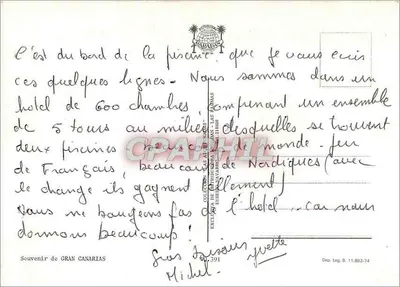 C'est du bord de la piscine que je vous écris
ces quelques lignes - Nous sommes dans un
hotel de 600 chambres comprenant un ensemble
de 5 tours au milieu desquelles se trouvent
deux piscines beaucoup de monde. peu
de Français, beaucoup de Nordiques (avec
le change ils gagnent tellement)
Nous ne bougeons pas de l'hotel - car nous
dormons beaucoup!
Gros Bisous
Michel - Yvette
CPAPHIL
Souvenir de GRAN CANARIAS
391
Dep. Leg. B. 11.882-14